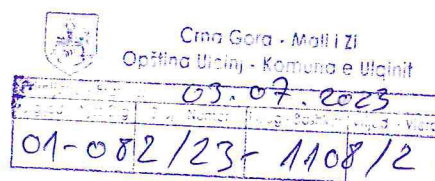 Crna Gora - Mali i Zi
Opština Ulcinj - Komuna e Ulqinit
03.07.2023
01-082/23-1108/2